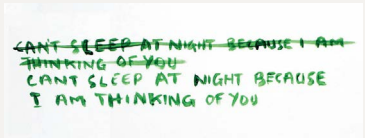 CAN'T SLEEP AT NIGHT BECAUSE I AM
THINKING OF YOU
CANT SLEEP AT NIGHT BECAUSE
I AM THINKING OF YOU